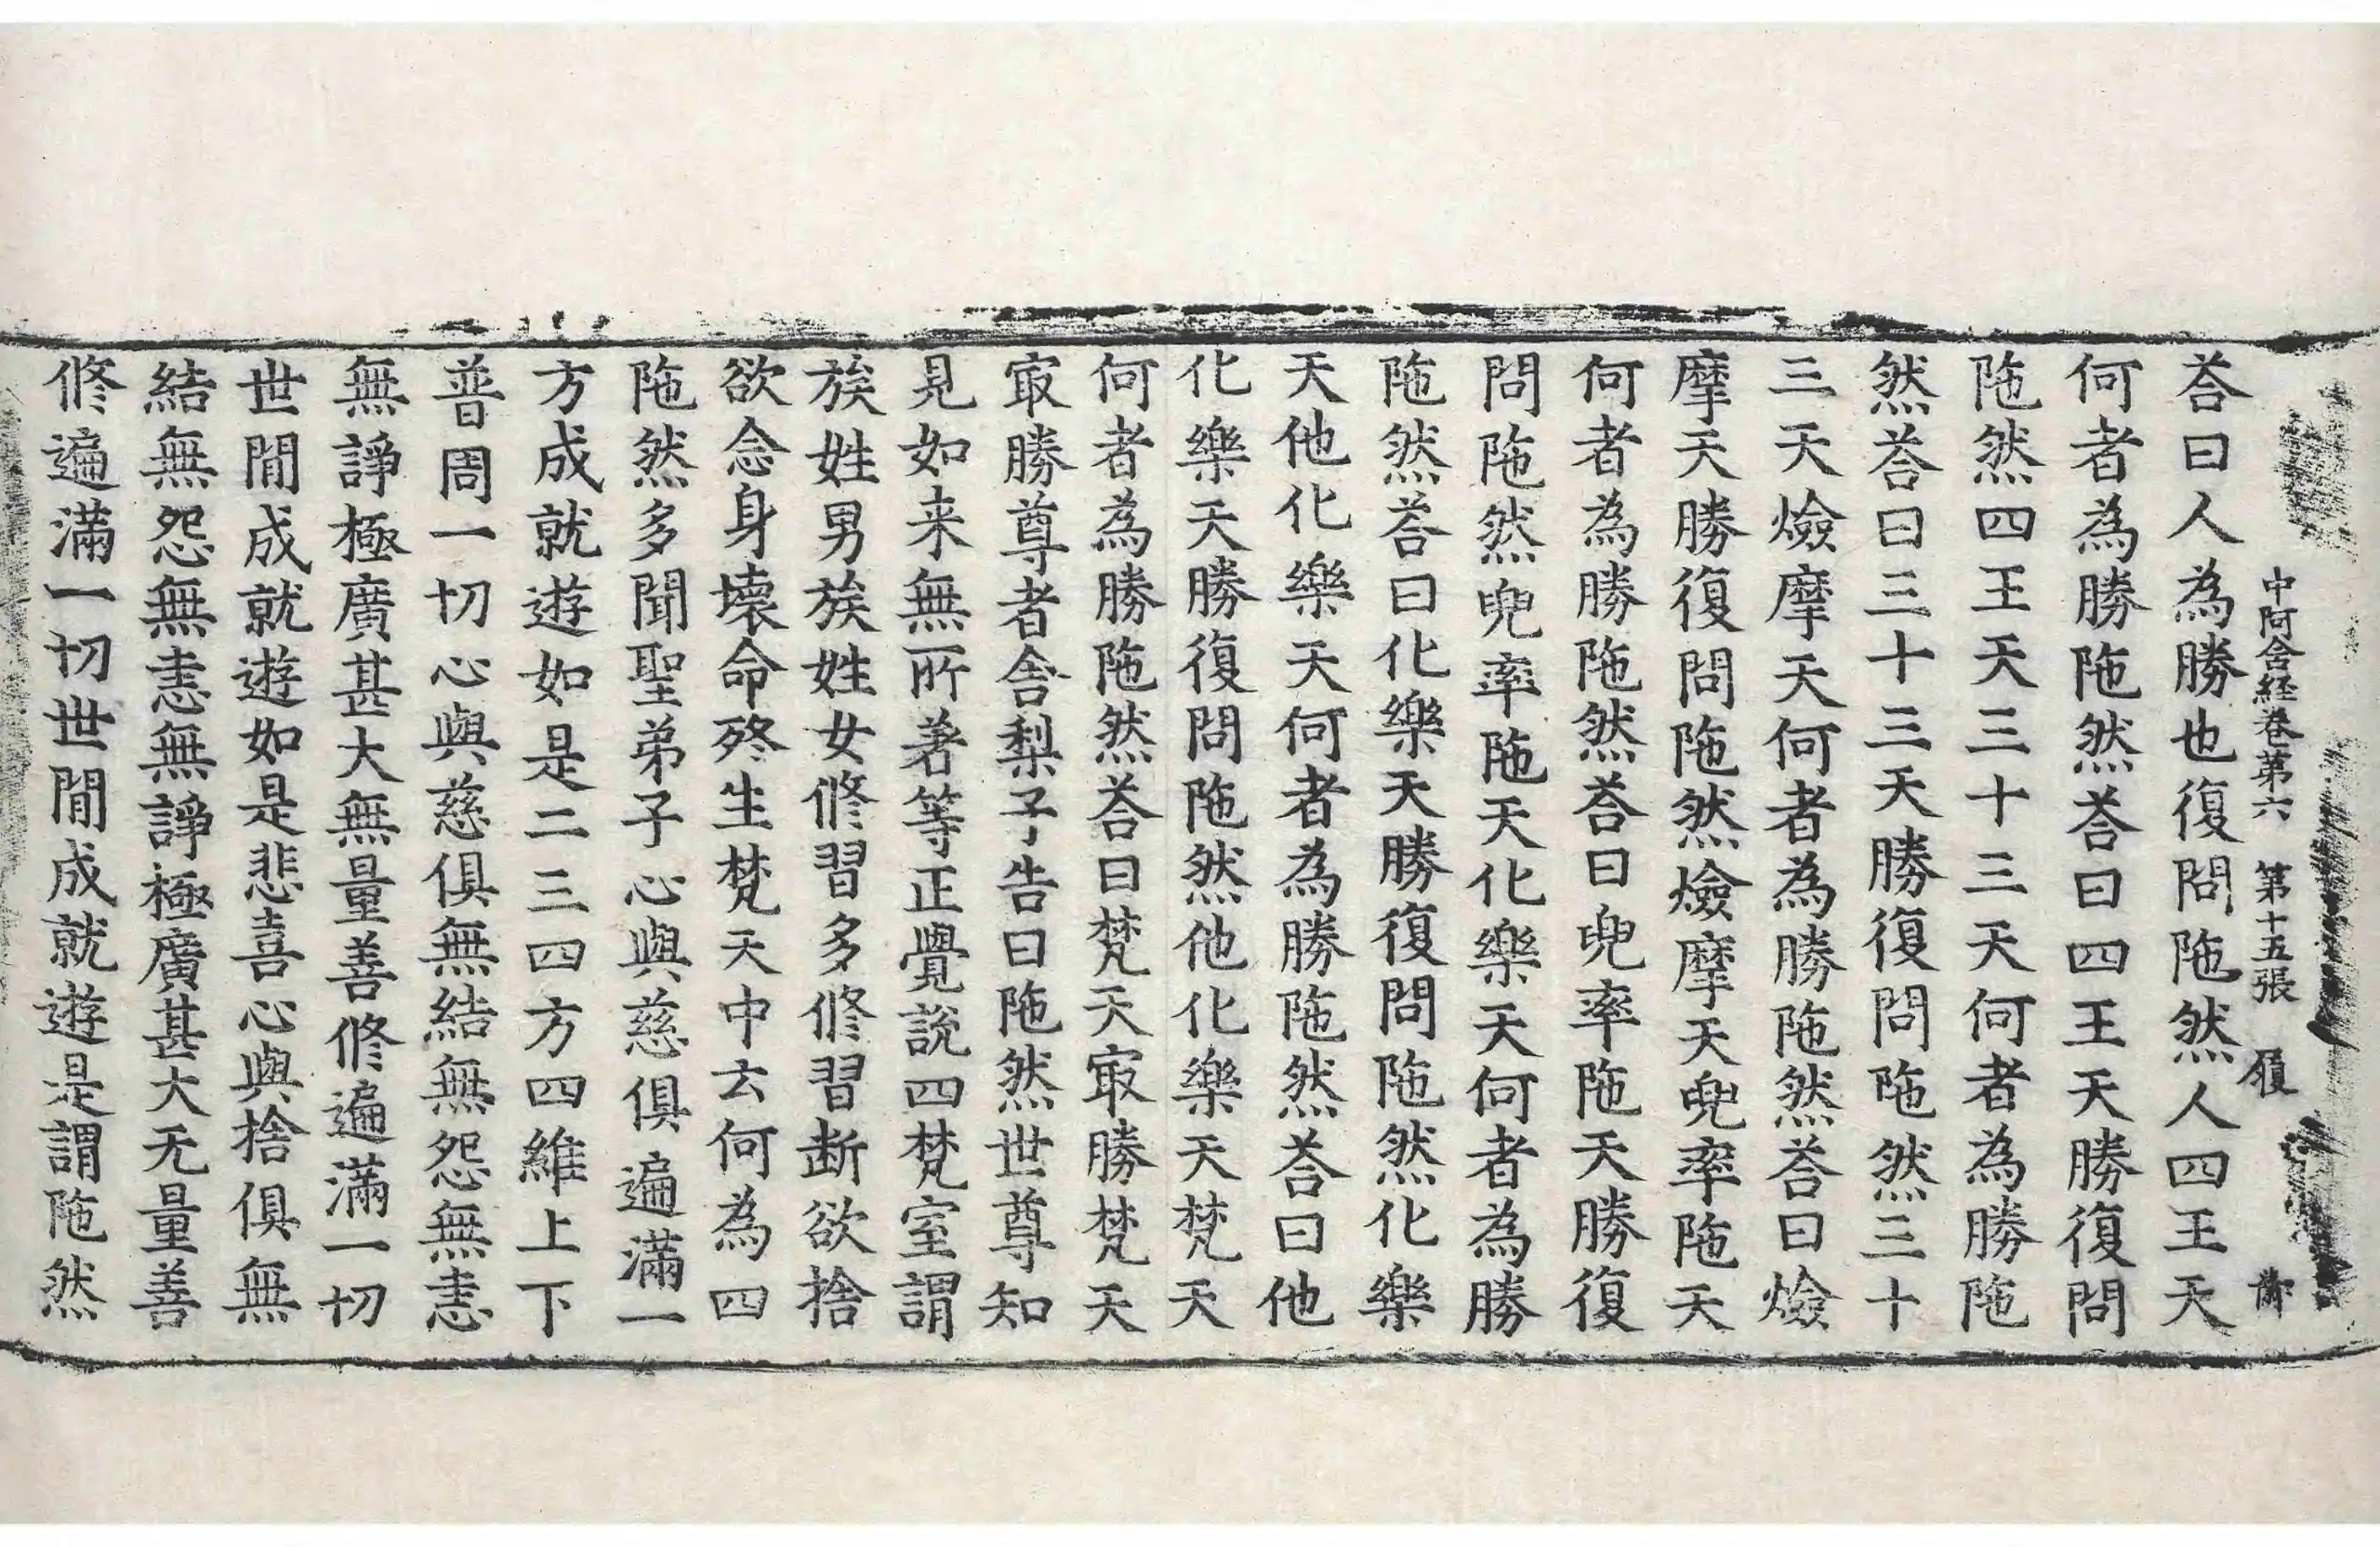 中阿含経卷第六　第十五張　履
荅曰人為勝也復問陁然人四王天
何者為勝陁然荅曰四王天勝復問
陁然四王天三十三天何者為勝陁
然荅曰三十三天勝復問陁然三十
三天㷿摩天何者為勝陁然荅曰㷿
摩天勝復問陁然㷿摩天兜率陁天
何者為勝陁然荅曰兜率陁天勝復
問陁然兜率陁天化樂天何者為勝
陁然荅曰化樂天勝復問陁然化樂
天他化樂天何者為勝陁然荅曰他
化樂天勝復問陁然他化樂天梵天
何者為勝陁然荅曰梵天㝡勝梵天
㝡勝尊者舍梨子告曰陁然世尊知
見如来無所著等正覺說四梵室謂
族姓男族姓女修習多修習断欲捨
欲念身壞命終生梵天中云何為四
陁然多聞聖弟子心與慈俱遍滿一
方成就遊如是二三四方四維上下
普周一切心與慈俱無結無怨無恚
無諍極廣甚大無量善修遍滿一切
世間成就遊如是悲喜心與捨俱無
結無怨無恚無諍極廣甚大无量善
修遍滿一切世間成就遊是謂陁然